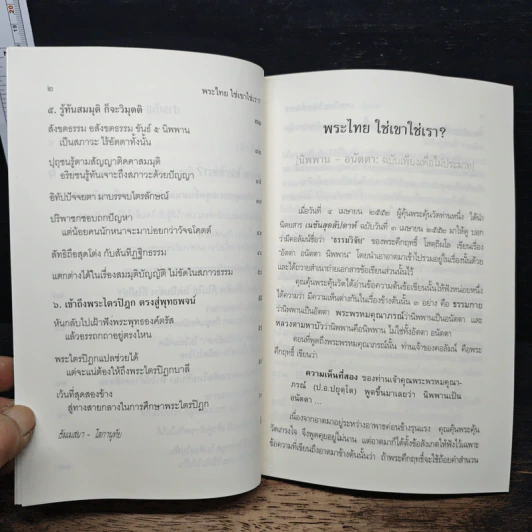 ๒
พระไทย ใช่เขาใช่เรา?
๕. รู้ทันสมมุติ ก็จะวิมุตติ
สังขตธรรม อสังขตธรรม ขันธ์ ๕ นิพพาน
เป็นสภาวะ ไร้อัตตาทั้งนั้น
ปุถุชนรู้ตามสัญญาติดคาสมมุติ
อริยชนรู้ทันเจาะถึงสภาวะด้วยปัญญา
อิทัปปัจจยตา มาบรรจบไตรลักษณ์
ปริพาชกชอบถกปัญหา
แต่น้อยคนนักหนาจะมาบ่อยกว่าวัจฉโคตต์
ลัทธิถือสุดโต่ง กับสันทิฏฐิกธรรม
แตกต่างได้ในเรื่องสมมุติบัญญัติ ไม่ขัดในสภาวธรรม
๖. เข้าถึงพระไตรปิฎก ตรงสู่พุทธพจน์
หันกลับไปเฝ้าฟังพระพุทธองค์ตรัส
แล้วอรรถกถาอยู่ตรงไหน
พระไตรปิฎกแปลช่วยได้
แต่จะแน่ต้องให้ถึงพระไตรปิฎกบาลี
เว้นที่สุดสองข้าง
สู่ทางสายกลางในการศึกษาพระไตรปิฎก
พระไทย ใช่เขาใช่เรา?
นิพพาน - อนัตตา: ฉบับเพียงเพื่อไม่ประมาท
เมื่อวันที่ ๔ เมษายน ๒๕๕๒ ผู้คุ้นพระคุ้นวัดท่านหนึ่ง ได้นำ
นิตยสาร เนชั่นสุดสัปดาห์ ฉบับวันที่ ๓ เมษายน ๒๕๕๒ มาให้ดู บอก
ว่ามีคอลัมน์ชื่อว่า "ธรรมวิจัย" ของพระศึกฤทธิ์ โสตฺถิผโล เขียนเรื่อง
"อัตตา อนัตตา นิพพาน" โดยนำเอาอาตมาเข้าไปรวมอยู่ในเรื่องนั้นด้วย
และได้ถ่ายสำเนาถ่ายเอกสารข้อเขียนส่วนนั้นไว้
คุณคุ้นพระคุ้นวัดได้อ่านข้อความต้นข้อเขียนนั้นให้ฟังหน่อยหนึ่ง
ได้ความว่า มีความเห็นต่างกันในเรื่องข้างต้นนั้น ๓ อย่าง คือ ธรรมกาย
ว่านิพพานเป็นอัตตา พระพรหมคุณาภรณ์ว่านิพพานเป็นอนัตตา และ
หลวงตามหาบัวว่านิพพานคือนิพพาน ไม่ใช่ทั้งอัตตา อนัตตา
ตอนที่พูดถึงพระพรหมคุณาภรณ์นั้น ท่านเจ้าของคอลัมน์ คือพระ
ศึกฤทธิ์ เขียนว่า
ความเห็นที่สอง ของท่านเจ้าคุณพระพรหมคุณา-
ภรณ์ (ป.อ.ปยุตฺโต) พูดขึ้นมาเลยว่า นิพพานเป็น
อนัตตา ...
เนื่องจากอาตมาอยู่ระหว่างอาพาธค่อนข้างรุนแรง คุณคุ้นพระคุ้น
วัดเกรงใจ จึงพูดคุยอยู่ไม่นาน แต่อาตมาก็ได้ตั้งข้อสังเกตให้ฟังไว้เฉพาะ
ข้อความที่เขียนถึงอาตมาข้างต้นนั้นว่า ถ้าพระศึกฤทธิ์จะใช้ถ้อยคำสำนวน